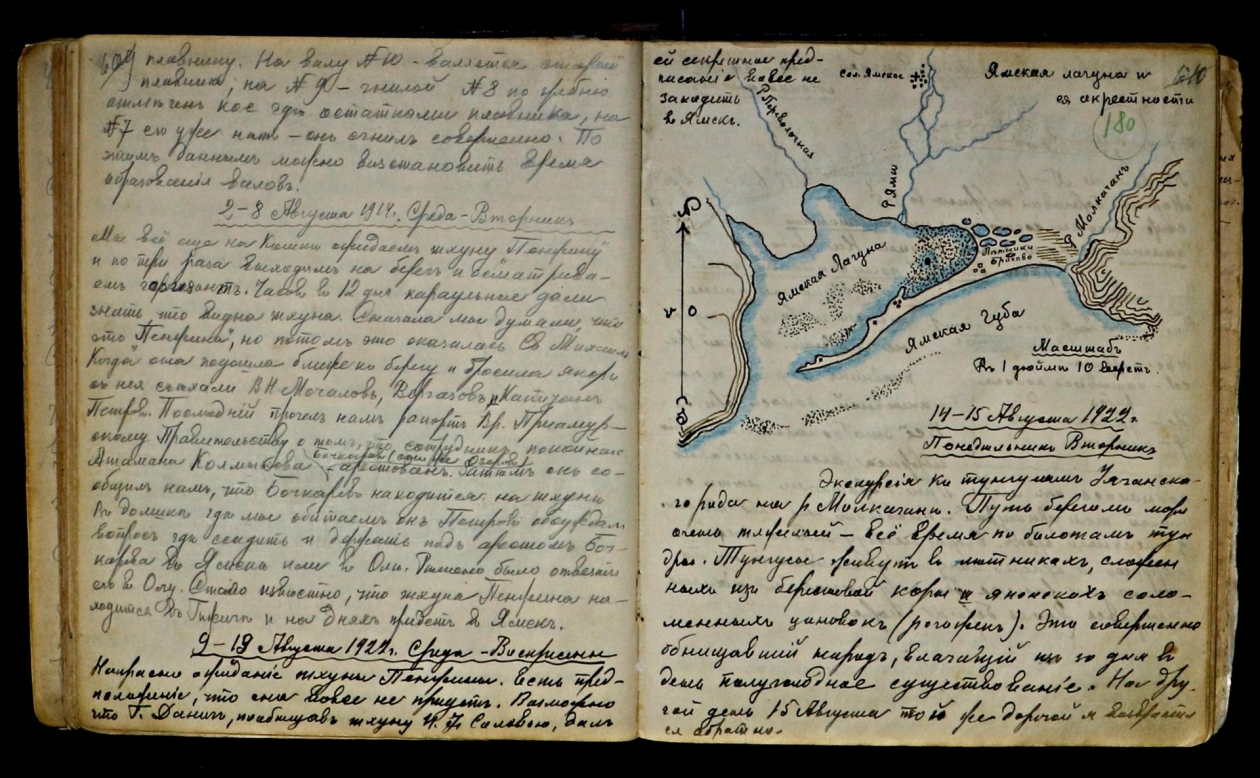 плавнику. На валу №10 - валяется старый
плавник, на №9 - гнилой №8 по гребню
отмѣченъ кое гдѣ остатками плавника, на
№7 его уже нѣтъ - онъ сгнилъ совершенно. По
этимъ даннымъ можно возстановить время
образованія валовъ.
2-8 Августа Среда-Вторникъ
Мы всё еще на Кошкѣ ожидаемъ шхуну "Пенжину"
и по три раза выходимъ на берегъ и
горизонтъ. Часовъ въ 12 дня караульные дали
знать, что видна шхуна. Сначала мы думали, что
это "Пенжина", но потомъ это оказалась Св.
Когда она подошла ближе къ берегу и бросила якорь
съ нея съѣхали В.Н. Мочаловъ, и Капитанъ
Петровъ. Послѣдній прочелъ намъ рапортъ Вр. Приамур-
скому Правительству о томъ, что сотрудникъ покойнаго
Атамана Калмыкова Бочкаревъ арестованъ. Затѣмъ онъ со-
общилъ намъ, что Бочкаревъ находится на шхунѣ
Въ домикѣ гдѣ мы обитаемъ онъ Петровъ обсуждалъ
вопросъ гдѣ ссадить и держать подъ арестомъ Боч-
карева въ Ямскѣ или въ Олѣ. Рѣшено было отвезти
его въ Олу. Стало извѣстно, что шхуна Пенжина на-
ходится въ Гижигѣ и на дняхъ придетъ въ Ямскъ.
9-13 Августа 1922г. Среда-Воскресенье
Напрасно ожиданіе шхуны Пенжины. Есть пред-
положеніе, что она вовсе не придетъ. Возможно
что Г. Даничъ, пообѣщавъ шхуну Соловью, далъ
ей секретное пред-
писаніе вовсе не
заходить
въ Ямскъ.
Сел. Ямское
Ямская лагуна и
ея окрестности
180
Р. Переволочная
Р. Яма
Р. Малкачанъ
Ямская Лагуна
Ямская Губа
С
В
Ю
Масштабъ
Въ 1 дюймѣ 10 верстъ.
14-15 Августа 1922г.
Понедѣльникъ Вторникъ
Экскурсія къ тунгусамъ Уяганска-
го рода на р. Малкачанъ. Путь берегомъ моря
очень тяжелый - всё время по болотамъ тун
дры. Тунгусы живутъ въ лѣтникахъ, сложен
ныхъ изъ березовой коры и японскихъ соло-
менныхъ цыновокъ (рогожекъ). Это совершенно
обнищавшій народъ, влачащій изо дня въ
день полуголодное существованіе. На дру-
гой день 15 Августа той же дорогой я возвратил
ся обратно.